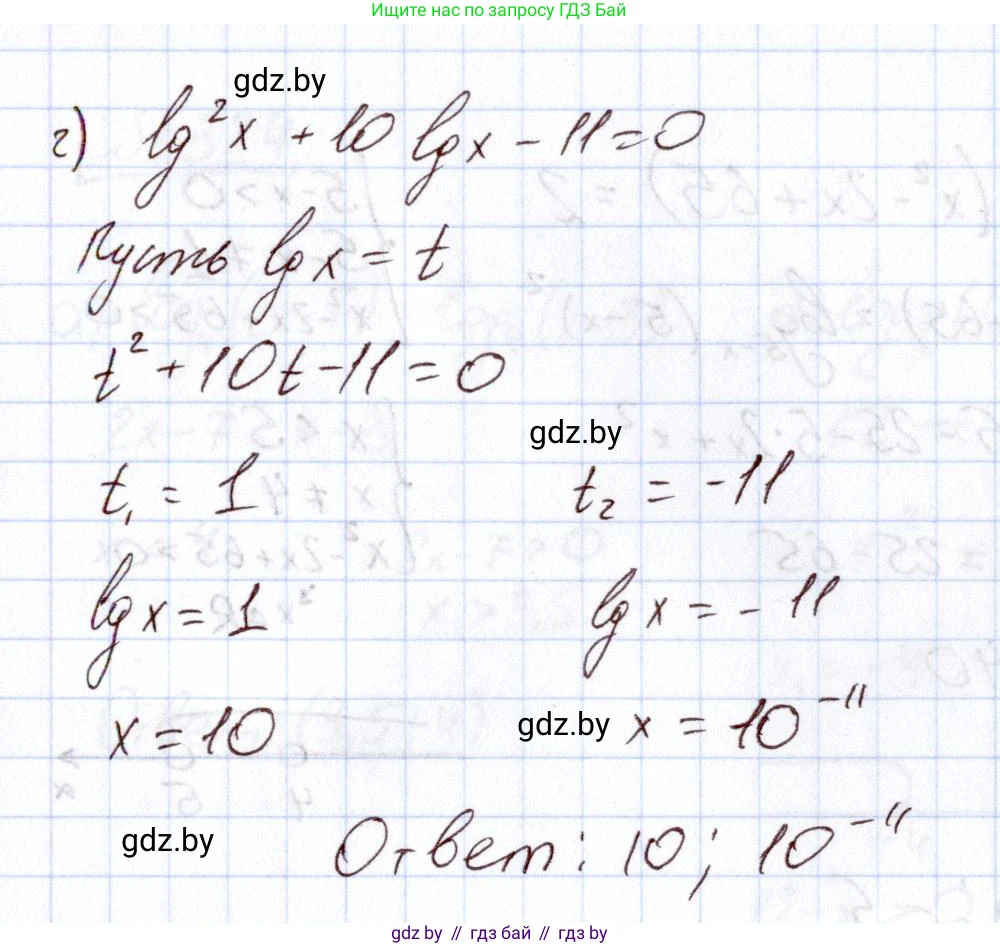 Ищите нас по запросу ГДЗ Бай
gdz.by
г) lg²x + 10 lgx - 11 = 0
Пусть lgx = t
t² + 10t - 11 = 0
gdz.by
t₁ = 1 t₂ = -11
lgx = 1 lgx = -11
x = 10 gdz.by x = 10⁻¹¹
gdz.by Ответ: 10; 10⁻¹¹
gdz.by // гдз бай // гдз by